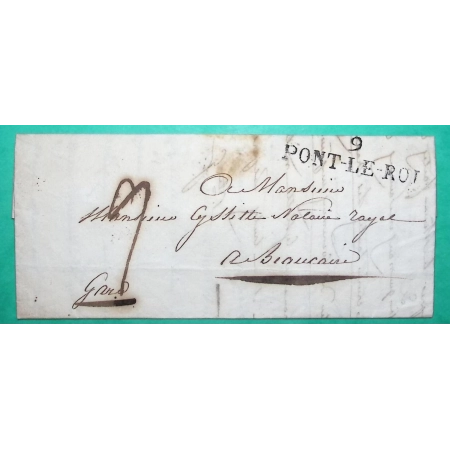 9
PONT-LE-ROI
A Monsieur
Monsieur Notaire royal
a Beaucaire
Gard